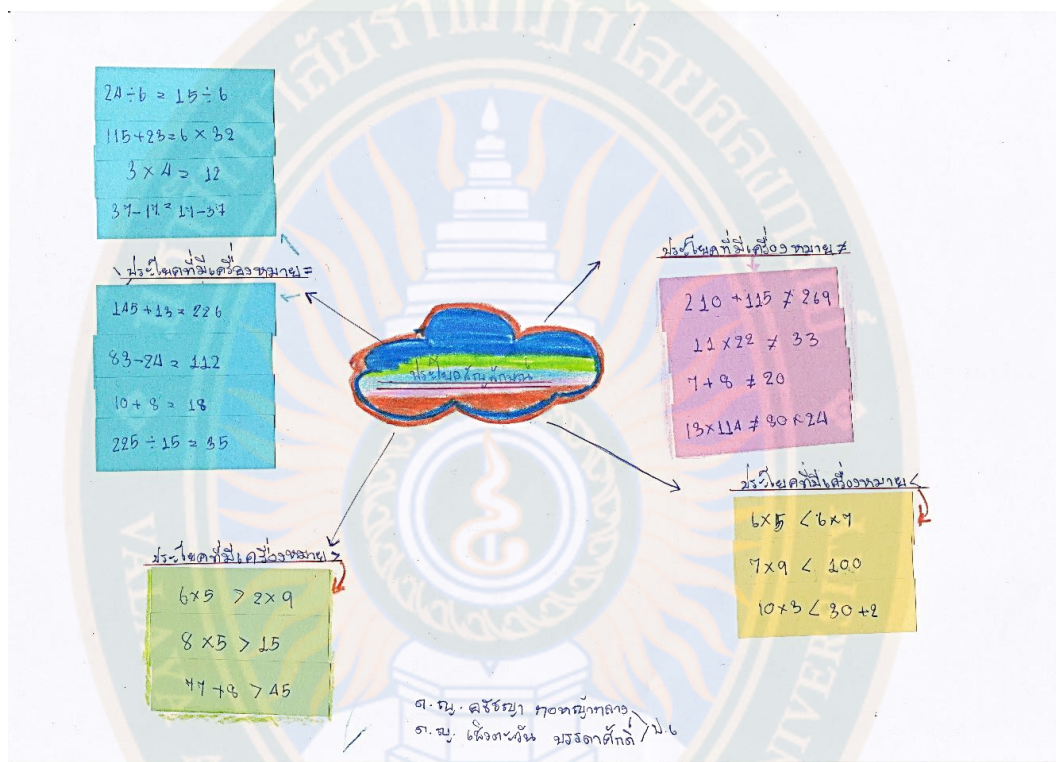 24÷6 = 15÷6
115+23=6×32
3×4 = 12
37-17=17-37
ประโยคที่มีเครื่องหมาย =
145+13=226
83-24=112
10+8=18
225÷15=35
ประโยคสัญลักษณ์
ประโยคที่มีเครื่องหมาย ≠
210+115≠269
11×22≠33
7+8≠20
13×114≠30×24
ประโยคที่มีเครื่องหมาย <
6×5<6×7
7×9<100
10×3<30+2
ประโยคที่มีเครื่องหมาย >
6×5>2×9
8×5>15
77+8>45
ด.ญ.
ด.ญ. บรรดาศักดิ์ ป.6